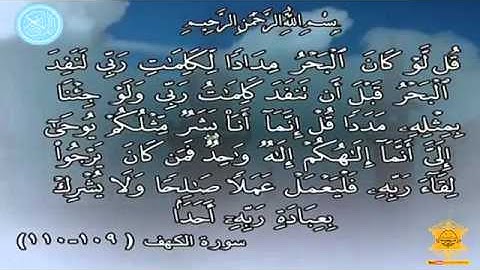 بِسْمِ اللَّهِ الرَّحْمَٰنِ الرَّحِيمِ
قُل لَّوْ كَانَ ٱلْبَحْرُ مِدَادًا لِّكَلِمَٰتِ رَبِّى لَنَفِدَ
ٱلْبَحْرُ قَبْلَ أَن تَنفَدَ كَلِمَٰتُ رَبِّى وَلَوْ جِئْنَا
بِمِثْلِهِۦ مَدَدًا قُلْ إِنَّمَآ أَنَا۠ بَشَرٌ مِّثْلُكُمْ يُوحَىٰٓ
إِلَىَّ أَنَّمَآ إِلَٰهُكُمْ إِلَٰهٌ وَٰحِدٌ فَمَن كَانَ يَرْجُوا۟
لِقَآءَ رَبِّهِۦ فَلْيَعْمَلْ عَمَلًا صَٰلِحًا وَلَا يُشْرِكْ
بِعِبَادَةِ رَبِّهِۦٓ أَحَدًۢا
سورة الكهف ( ١٠٩-١١٠ )